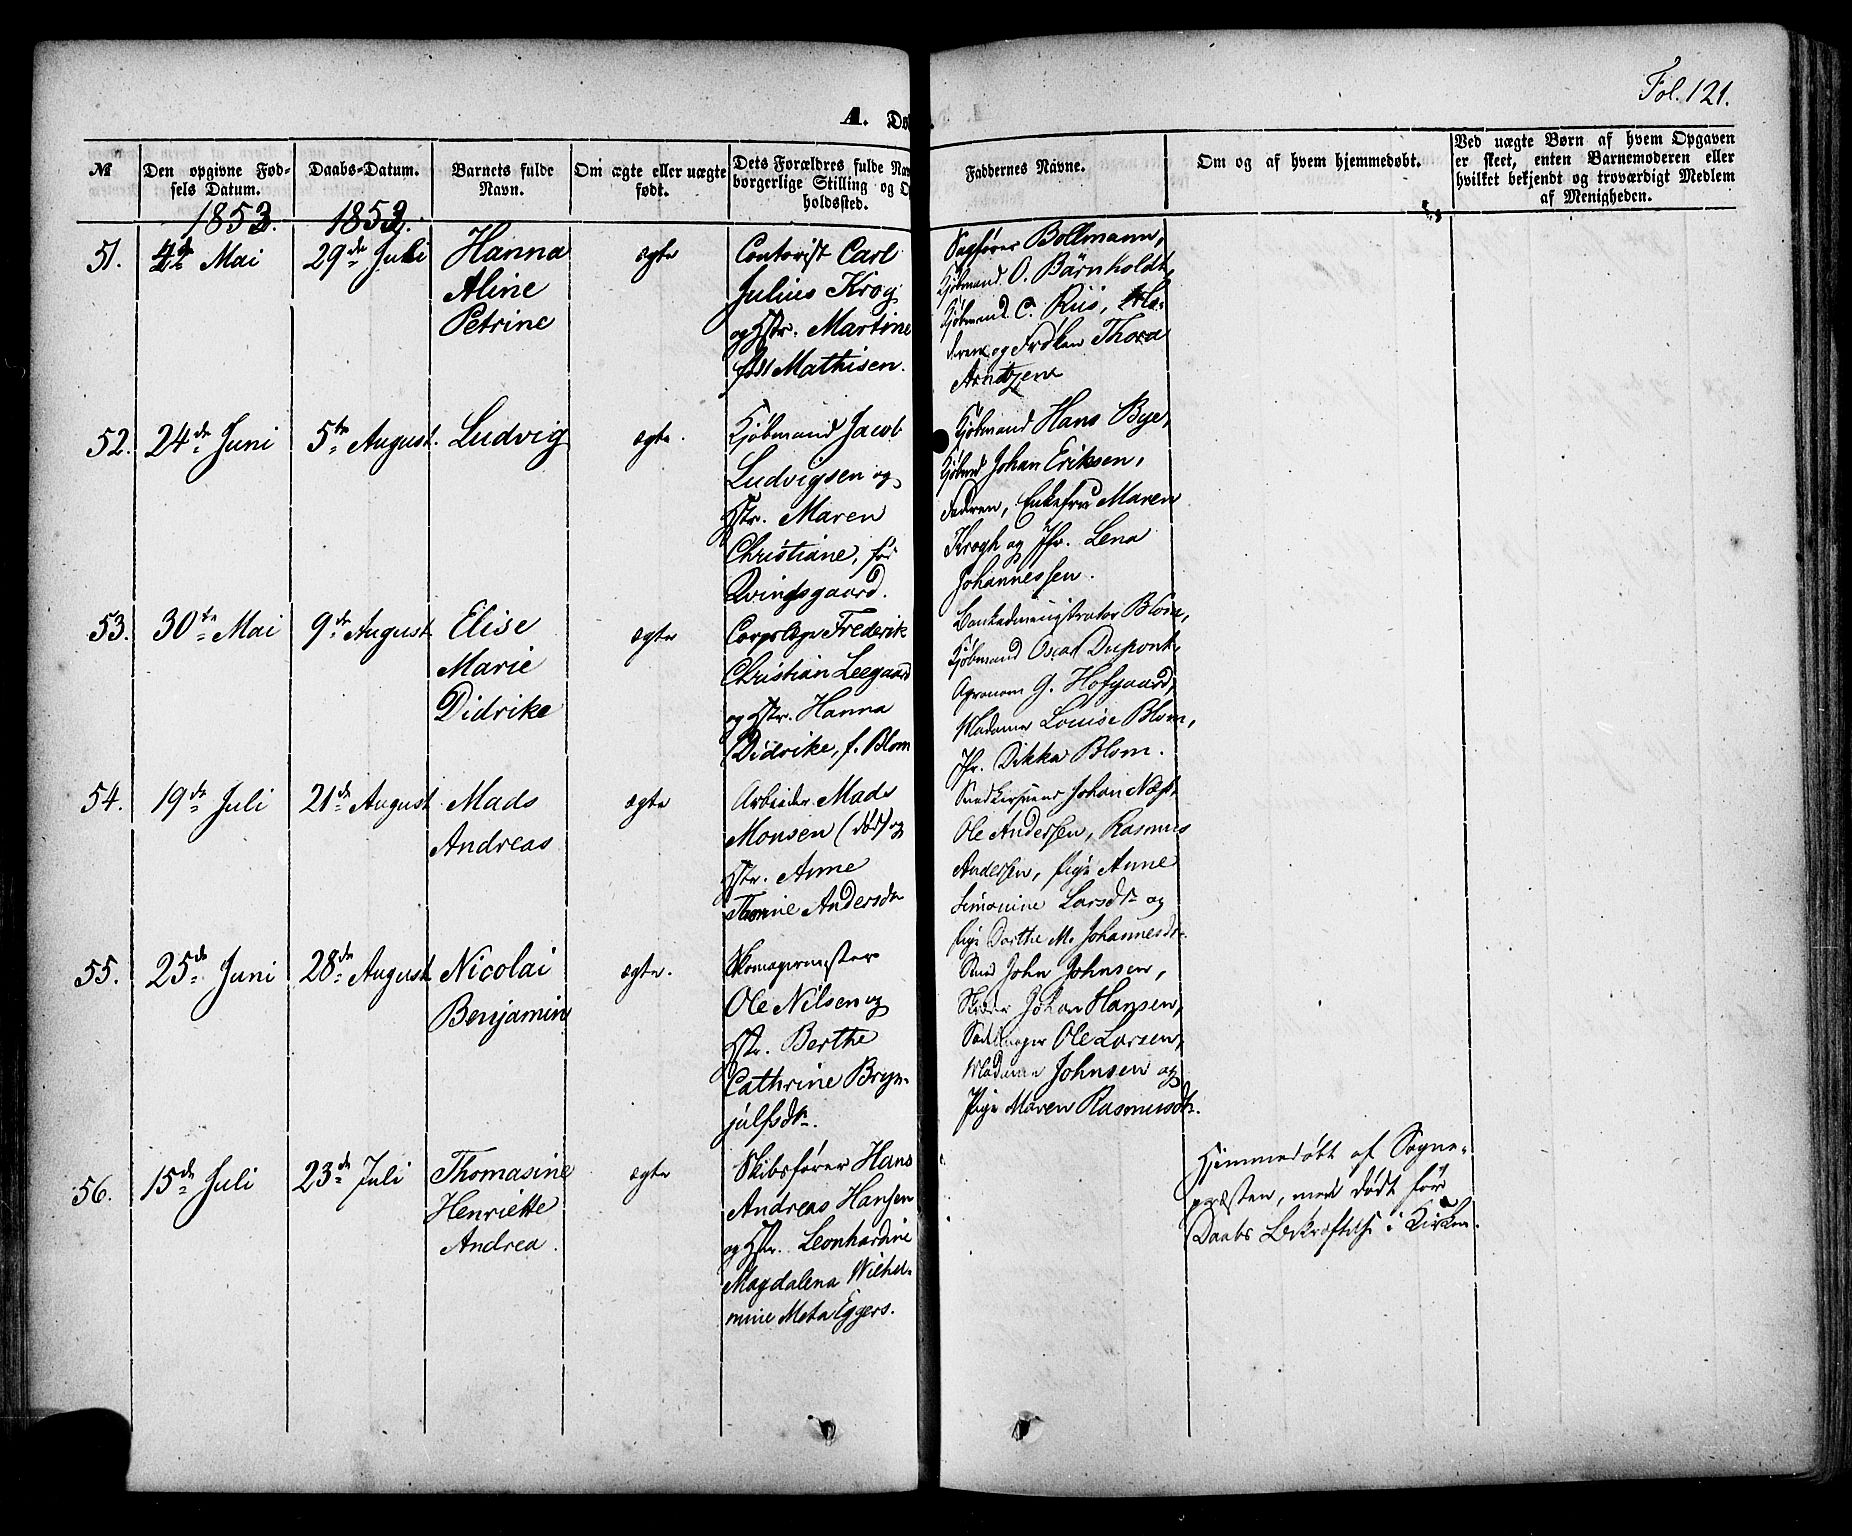 Fol. 121.
A. Dø
№
Den opgivne Fød-
sels Datum.
1853.
Daabs-Datum.
1853.
Barnets fulde
Navn.
Om ægte eller uægte
født.
Dets Forældres fulde Nav
borgerlige Stilling og O
holdssted.
Faddernes Navne.
Om og af hvem hjemmedøbt.
Ved uægte Børn af hvem Opgaven
er skeet, enten Barnemoderen eller
hvilket bekjendt og troværdigt Medlem
af Menigheden.
51.
4de Mai
29de Juli
Hanna
Aline
Petrine
ægte
Contorist Carl
Julius Krog
og Hstr. Martine
født Mathisen.
Sagfører Bollmann,
Kjøbmand O. Bärnholdt,
Kjøbmand C. Riis, Mo-
deren og Frøken Thora
Arntzen
52.
24de Juni
5te August.
Ludvig
ægte.
Kjøbmand Jacob
Ludvigsen og
Hstr. Maren
Christiane, før
Qvingsgaard.
Kjøbmand Hans Bye,
Kjøbmd Johan Eriksen,
Faderen, Enkefru Maren
Krogh og Jfr. Lena
Johannessen.
53.
30te Mai
9de August
Elise
Marie
Didrike
ægte
Corpslæge Frederik
Christian Leegaard
og Hstr. Hanna
Didrike, f. Blom
Bankadministrator Blom,
Kjøbmand Oscar Dupont,
Agronom G. Hofgaard,
Madame Louise Blom,
Jfr. Dikka Blom.
54.
19de Juli
21de August
Mads
Andreas
ægte
Arbeider Mads
Monsen (død) og
Hstr. Anne
Thomine Andersdr
Snedkersvend Johan Næss,
Ole Andersen, Rasmus
Andersen, Pige Anne
Simonine Larsdtr og
Pige Dorthe M. Johannesdr.
55.
25de Juni
28de August
Nicolai
Benjamin
ægte.
Skomagermester
Ole Nilsen og
Hstr. Berthe
Cathrine Bryn-
julfsdtr.
John Johnsen,
Johan Hansen,
Ole Larsen,
Madame Johnsen og
Pige Maren Rasmusdtr.
56.
15de Juli
23de Juli
Thomasine
Henriette
Andrea.
ægte
Skibsfører Hans
Andreas Hansen
og Hstr. Leonhardine
Magdalena Wilhel-
mine Meta Eggers.
Hjemmedøbt af Sogne-
præsten, men død før
Daabs Bekræftelse i Kirken.